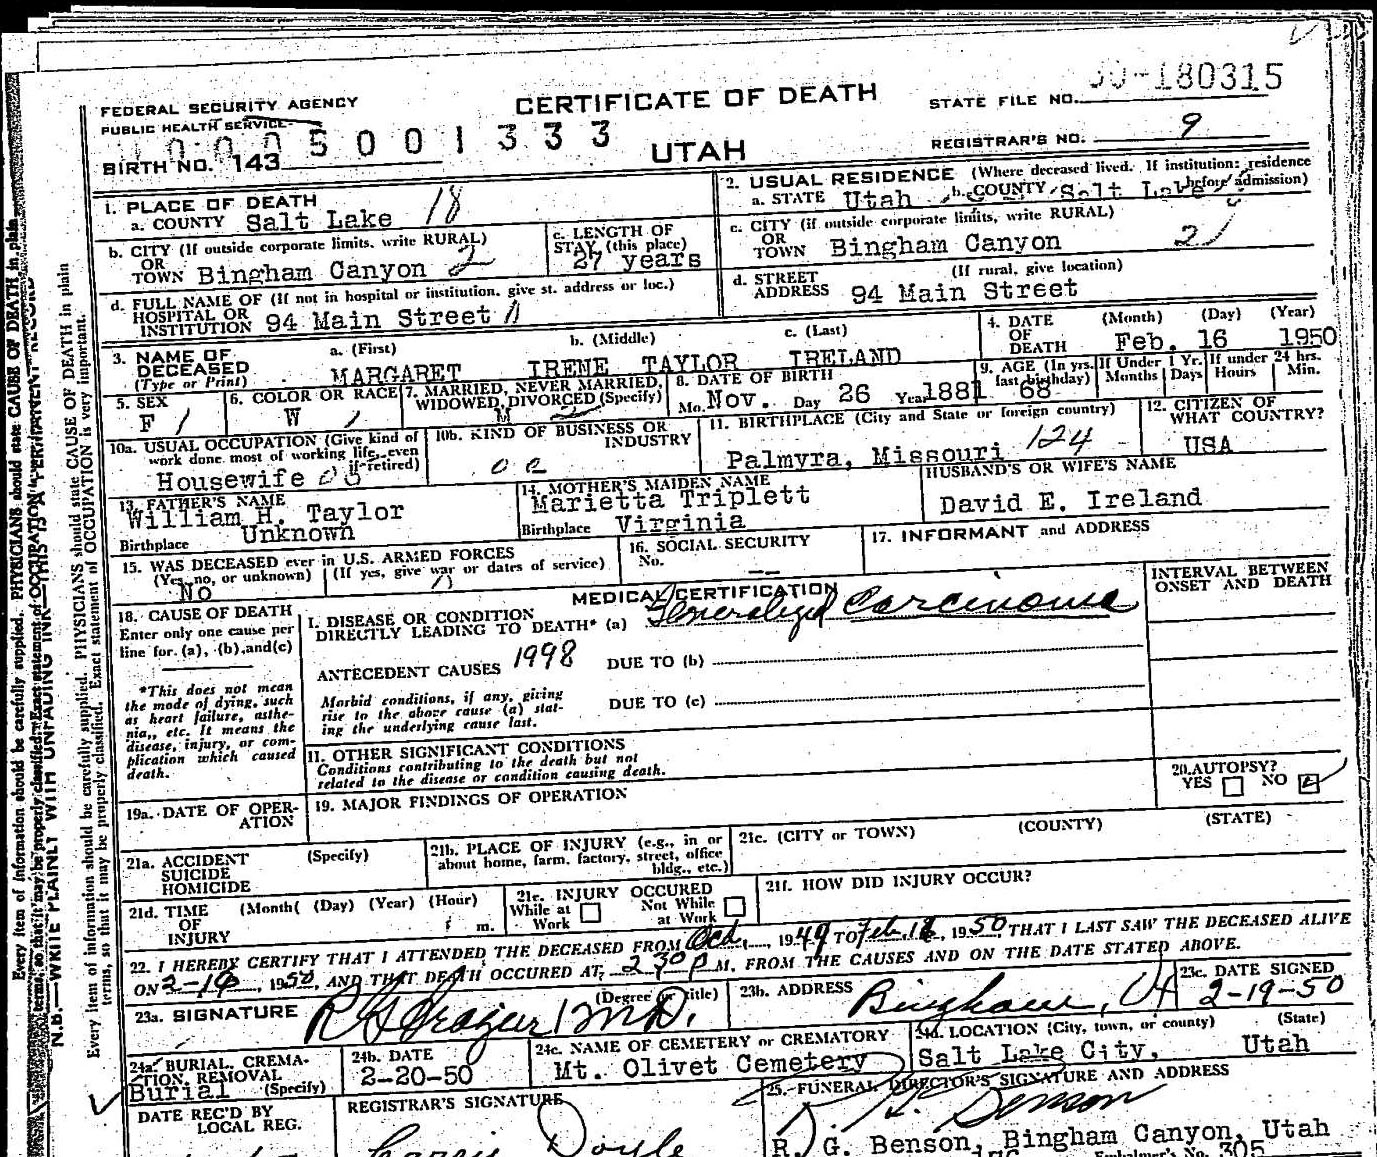 CERTIFICATE OF DEATH
UTAH
FEDERAL SECURITY AGENCY
PUBLIC HEALTH SERVICE
BIRTH NO. 143
5 0 0 1 3 3 3
STATE FILE NO. 180315
REGISTRAR'S NO. 9
1. PLACE OF DEATH
a. COUNTY Salt Lake 18
2. USUAL RESIDENCE (Where deceased lived. If institution: residence before admission)
a. STATE Utah b. COUNTY Salt Lake
b. CITY (If outside corporate limits, write RURAL)
OR
TOWN Bingham Canyon 2
c. LENGTH OF
STAY (this place)
27 years
c. CITY (if outside corporate limits, write RURAL)
OR
TOWN Bingham Canyon 2
d. FULL NAME OF (If not in hospital or institution, give st. address or loc.)
HOSPITAL OR
INSTITUTION 94 Main Street
d. STREET (If rural, give location)
ADDRESS 94 Main Street
3. NAME OF DECEASED
(Type or Print)
a. (First) b. (Middle) c. (Last)
MARGARET IRENE TAYLOR IRELAND
4. DATE OF DEATH (Month) (Day) (Year)
Feb. 16 1950
5. SEX
F 1
6. COLOR OR RACE
W 1
7. MARRIED, NEVER MARRIED,
WIDOWED, DIVORCED (Specify)
M 2
8. DATE OF BIRTH
Mo. Nov. Day 26 Year 1881
9. AGE (In yrs. last birthday) If Under 1 Yr. If under 24 hrs.
Months Days Hours Min.
68
10a. USUAL OCCUPATION (Give kind of
work done most of working life, even
if retired)
Housewife
10b. KIND OF BUSINESS OR
INDUSTRY
11. BIRTHPLACE (City and State or foreign country)
Palmyra, Missouri 124
12. CITIZEN OF
WHAT COUNTRY?
USA
13. FATHER'S NAME
William H. Taylor
Birthplace Unknown
14. MOTHER'S MAIDEN NAME
Marietta Triplett
Birthplace Virginia
HUSBAND'S OR WIFE'S NAME
David E. Ireland
15. WAS DECEASED ever in U.S. ARMED FORCES
(Yes, no, or unknown) (If yes, give war or dates of service)
No
16. SOCIAL SECURITY
No. --
17. INFORMANT and ADDRESS
MEDICAL CERTIFICATION
INTERVAL BETWEEN
ONSET AND DEATH
18. CAUSE OF DEATH
Enter only one cause per
line for (a), (b), and (c)
*This does not mean
the mode of dying, such
as heart failure, asthe-
nia,, etc. It means the
disease, injury, or com-
plication which caused
death.
I. DISEASE OR CONDITION
DIRECTLY LEADING TO DEATH* (a) Generalized Carcinoma
ANTECEDENT CAUSES 1998 DUE TO (b)
Morbid conditions, if any, giving
rise to the above cause (a) stat-
ing the underlying cause last.
DUE TO (c)
II. OTHER SIGNIFICANT CONDITIONS
Conditions contributing to the death but not
related to the disease or condition causing death.
19a. DATE OF OPER-
ATION
19. MAJOR FINDINGS OF OPERATION
20. AUTOPSY?
YES NO
21a. ACCIDENT (Specify)
SUICIDE
HOMICIDE
21b. PLACE OF INJURY (e.g., in or
about home, farm, factory, street, office
bldg., etc.)
21c. (CITY or TOWN) (COUNTY) (STATE)
21d. TIME (Month( (Day) (Year) (Hour)
OF
INJURY m.
21e. INJURY OCCURED
While at Work Not While at Work
21f. HOW DID INJURY OCCUR?
22. I HEREBY CERTIFY THAT I ATTENDED THE DECEASED FROM Oct, 1949 TO Feb. 16, 1950, THAT I LAST SAW THE DECEASED ALIVE
ON 2-16, 1950, AND THAT DEATH OCCURED AT 2 30 P M. FROM THE CAUSES AND ON THE DATE STATED ABOVE.
23a. SIGNATURE (Degree or title) M.D.
23b. ADDRESS Bingham, Ut
23c. DATE SIGNED
2-19-50
24a. BURIAL, CREMA-
TION, REMOVAL
Burial (Specify)
24b. DATE
2-20-50
24c. NAME OF CEMETERY or CREMATORY
Mt. Olivet Cemetery
24d. LOCATION (City, town, or county) (State)
Salt Lake City, Utah
DATE REC'D BY
LOCAL REG.
REGISTRAR'S SIGNATURE
Doyle
25. FUNERAL DIRECTOR'S SIGNATURE AND ADDRESS
Benson
R. G. Benson, Bingham Canyon, Utah
Embalmer's No. 305
N.B.—WRITE PLAINLY WITH UNFADING INK—THIS IS A PERMANENT RECORD
Every item of information should be carefully supplied. PHYSICIANS should state CAUSE OF DEATH in plain
terms, so that it may be properly classified. Exact statement of OCCUPATION is very important.